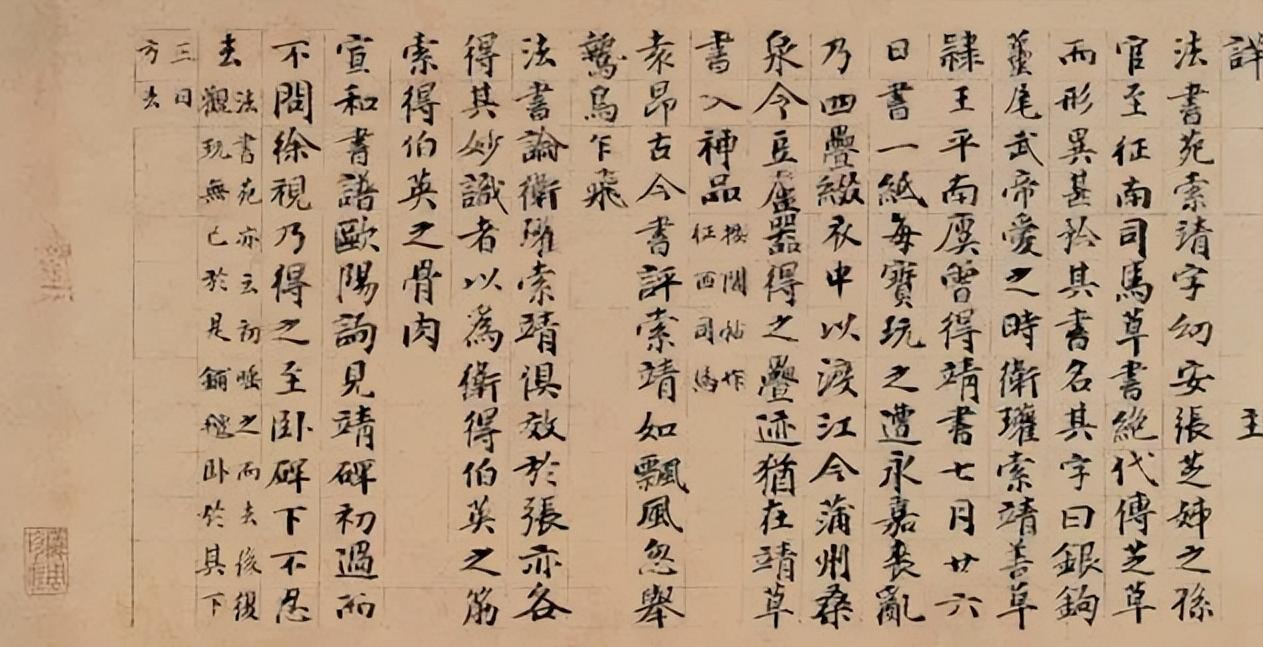 詳
法書苑索靖字幼安張芝姊之孫
官至征南司馬草書絕代傳芝草
而形異甚矜其書名其字曰銀鉤
蠆尾武帝愛之時衛瓘索靖善草
隸王平南廙曾得靖書七月廿六
日書一紙每寶玩之遭永嘉喪亂
乃四疊綴衣中以渡江今蒲州桑
泉令豆盧器得之疊迹猶在靖草
書入神品按閣帖作征西司馬
袁昂古今書評索靖如飄風忽舉
鷙鳥乍飛
法書論衛瓘索靖俱效於張亦各
得其妙識者以為衛得伯英之筋
索得伯英之骨肉
宣和書譜歐陽詢見靖碑初過而
不問徐視乃得之至卧碑下不忍
去法書苑亦云初唾之而去後復觀玩無已於是鋪氊卧於其下
三日方去